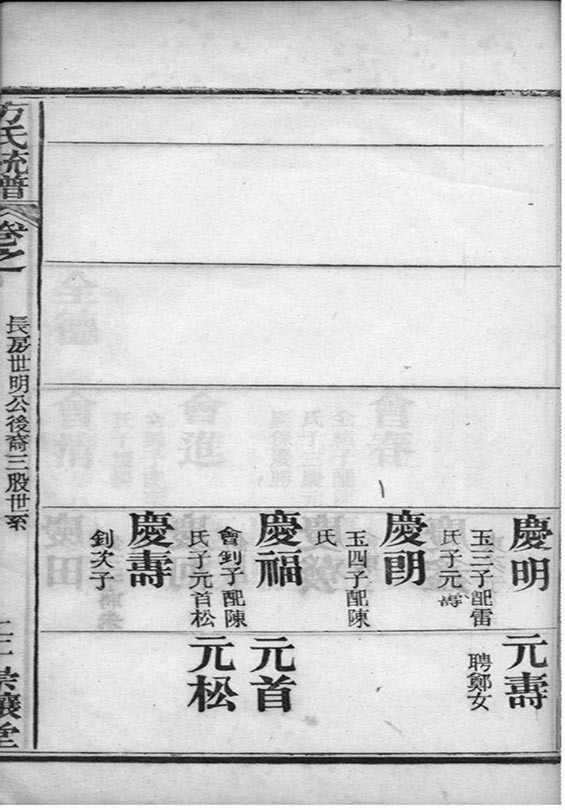 慶明
玉三子配雷
氏子元壽
慶朗
玉四子配陳
氏
慶福
會釗子配陳
氏子元首松
慶壽
釗次子
元壽
聘鄭女
元首
元松
方氏統譜
卷之
長房世明公後裔三股世系